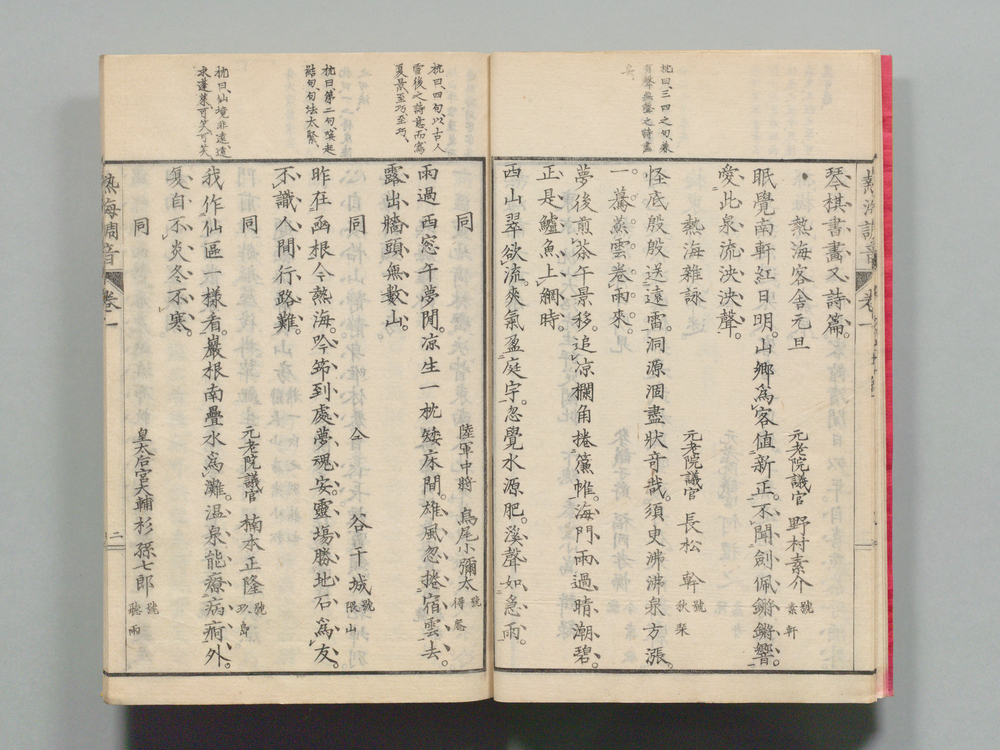 枕曰三四之句兼
有聲無聲之詩畫
矣
琴棋書畫又詩篇
熱海客舎元旦 元老院議官 野村素介 號素軒
眠覺南軒紅日明山鄉爲客値新正不聞劍佩鏘鏘響
愛此泉流泱泱聲
熱海雜詠 元老院議官 長松 幹 號秋琹
怪底殷殷送遠雷洞源涸盡狀奇哉須臾沸沸泉方漲
一驀蒸雲卷雨來
夢後煎茶午景移追凉欄角捲簾帷海門雨過晴潮碧
正是鱸魚上網時
西山翠欲流爽氣盈庭宇忽覺水源肥溪聲如急雨
枕曰四句以古人
雪後之詩意而寫
夏景至巧至巧
同 陸軍中將 鳥尾小彌太 號得菴
雨過西窓午夢閒凉生一枕矮床間雄風忽捲宿雲去
露出檣頭無數山
枕曰第二句喚起
結句句法太緊
同 仝 谷 干城 號隈山
昨在函根今熱海吟笻到處夢魂安靈塲勝地石爲友
不識人間行路難
枕曰仙境非遠遠
求蓬萊可笑可笑
同 元老院議官 楠本正隆 號玖島
我作仙區一樣看巖根南疊水爲灘温泉能療病痾外
夏自不炎冬不寒
同 皇太后宮大輔 杉 孫七郎 號聽雨
熱海調音 卷一 二